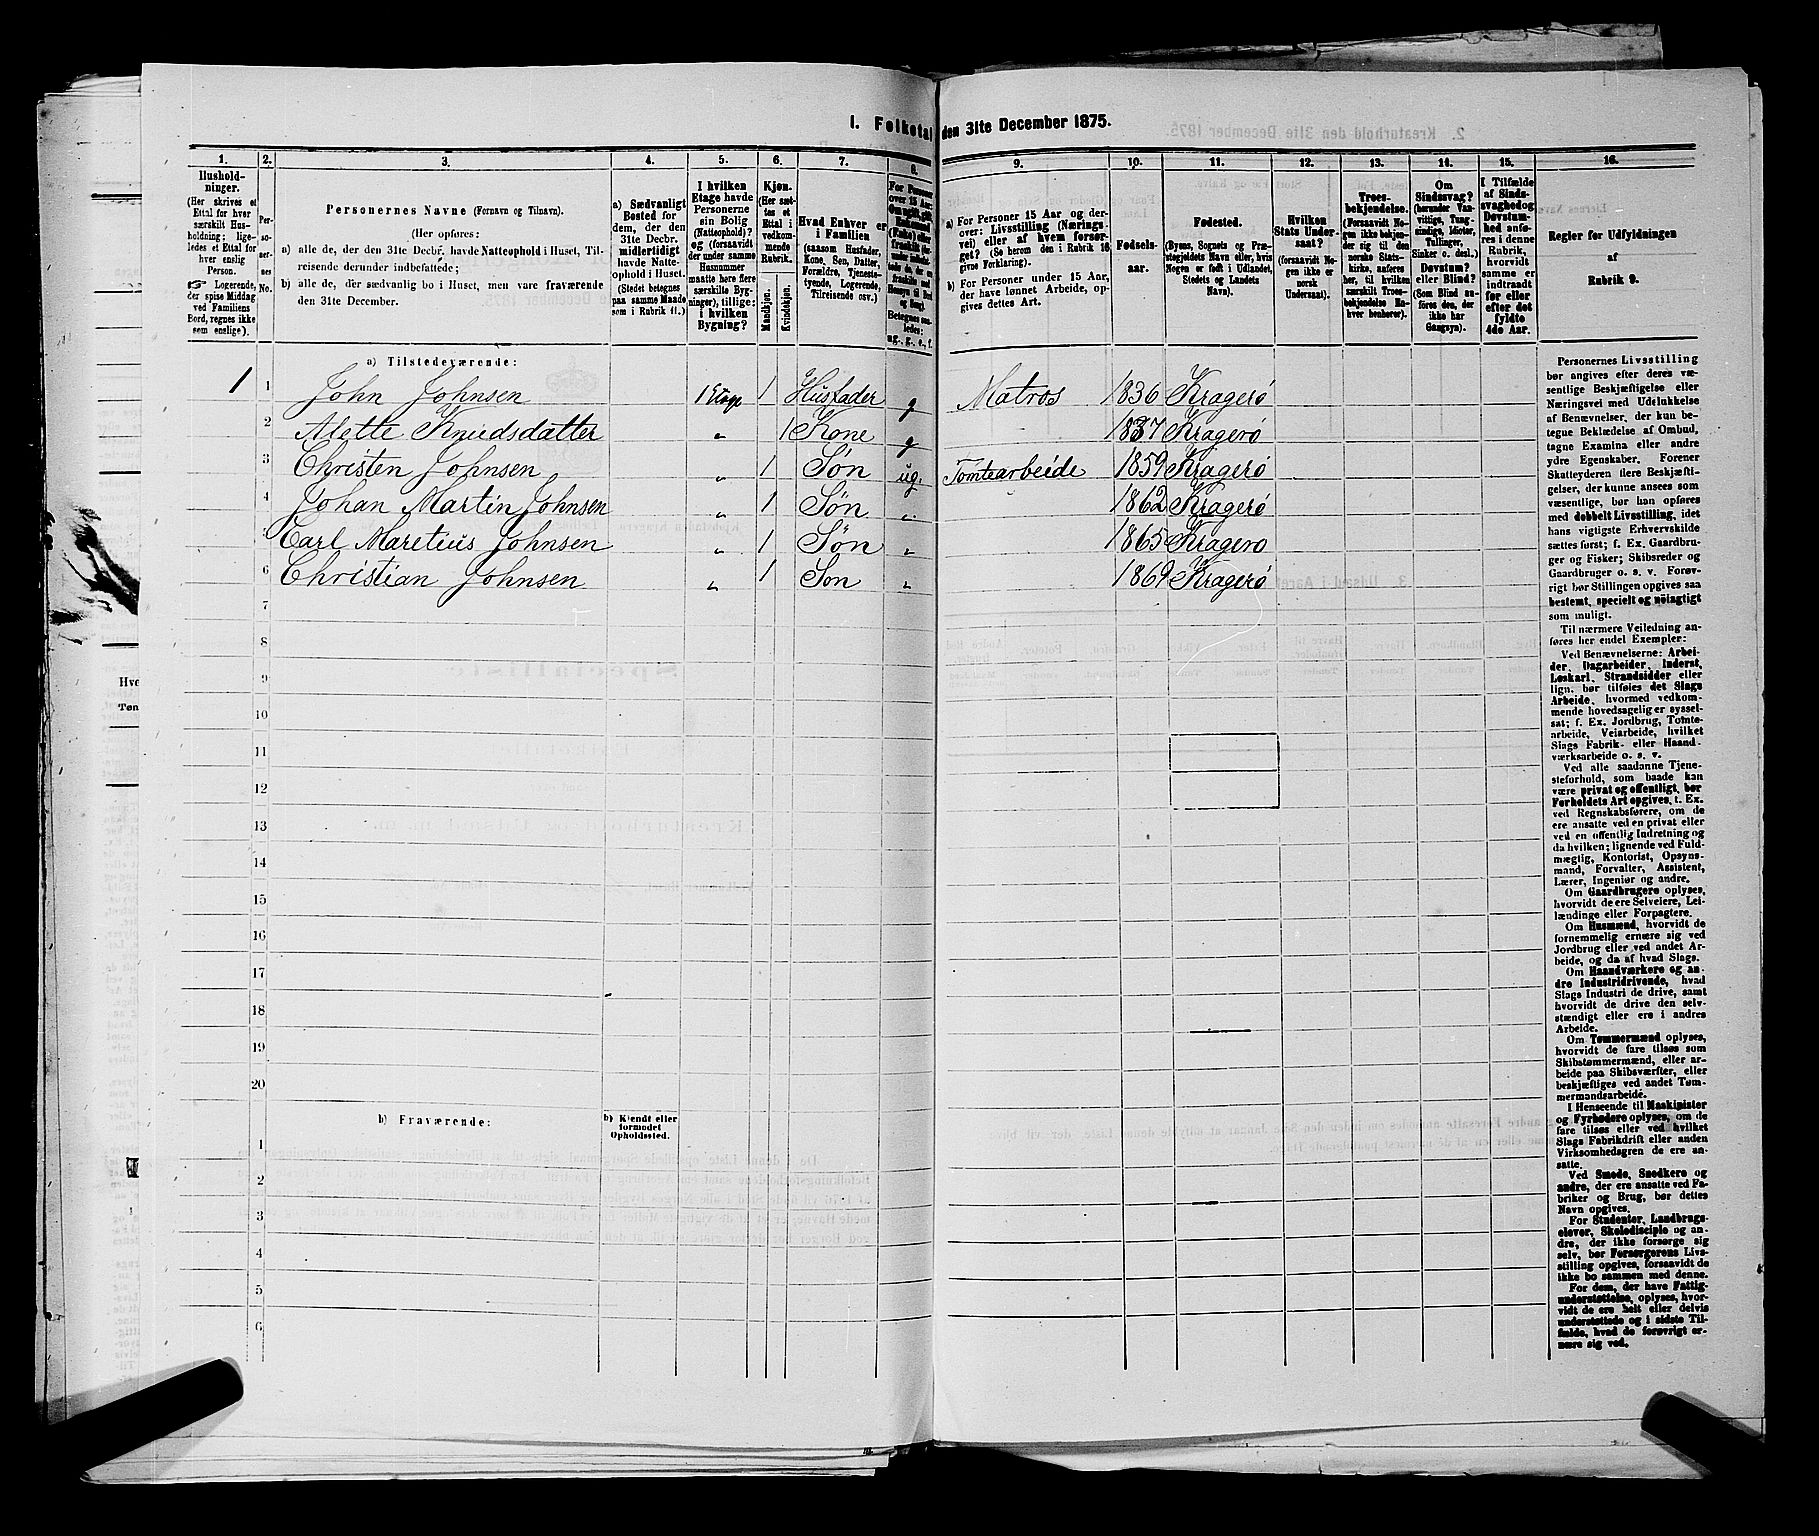 I. Folketal den 31te December 1875.
1. 2. 3. 4. 5. 6. 7. 8. 9. 10. 11. 12. 13. 14. 15. 16.
Husholdninger.
(Her skrives et
Ettal for hver
særskilt Husholdning;
ligeledes et Ettal for
enslig
Person.
Logerende,
der spise Middag
ved Familiens
Bord, regnes ikke
som enslige).
Personernes No.
Personernes Navne (Fornavn og Tilnavn).
(Her opføres:
a) alle de, der den 31te Decbr. havde Natteophold i Huset, Tilreisende
derunder indbefattede;
b) alle de, der sædvanlig bo i Huset, men vare fraværende
den 31te December.
a) Sædvanligt
Bosted for
dem, der den
31te Decbr.
midlertidigt
havde Natteophold
i Huset.
(Stedet betegnes
paa samme Maade
som i Rubrik 11.)
I hvilken
Etage havde
Personerne
sin Bolig
(Natteophold)?
og (forsaavidt
der under samme
Husnummer
maatte høre flere
særskilte Bygninger),
tillige:
i hvilken
Bygning?
Kjøn.
(Her sættes
et
Ettal i
vedkommende
Rubrik.
Mandkjøn.
Kvindekjøn.
Hvad Enhver er
i Familien
(saasom Husfader,
Kone, Søn, Datter,
Forældre, Tjenestetyende,
Logerende,
Tilreisende osv.)
a) For Personer 15 Aar og derover:
Livsstilling (Næringsvei)
eller af hvem forsørget?
(Se herom den i Rubrik 16
givne Forklaring).
b) For Personer under 15 Aar,
der have lønnet Arbeide, opgives
dettes Art.
Fødselsaar.
Fødested.
(Byens, Sognets og Præstegjeldets
Navn eller, hvis
Nogen er født i Udlandet,
Stedets og Landets
Navn).
Hvilken
Stats Undersaat?
(forsaavidt Nogen
ikke er
norsk
Undersaat).
Troesbekjendelse.
(Forsaavidt Nogen
ikke bekjender
sig til den
norske Statskirke,
anføres
her, til hvilken
særskilt Troesbekjendelse
Enhver
henhører).
Om
Sindssvag?
(herunder Vanvittige,
Tungsindige,
Idioter,
Tullinger,
Sinker o. desl.)
Døvstum?
eller Blind?
(Som Blind anføres
den, der
ikke har
Gangsyn).
I Tilfælde
af Sindssvaghed og
Døvstumhed
anføres
i denne
Rubrik,
hvorvidt
samme er
indtraadt
før eller
efter det
fyldte
4de Aar.
Regler for Udfyldningen
af
Rubrik 9.
a) Tilstedeværende:
1 1 John Johnsen 1 Etage 1 Husfader g Matros 1836 Kragerø
2 Alette Knudsdatter „ 1 Kone g 1837 Kragerø
3 Christen Johnsen „ 1 Søn ug. Tomtearbeide 1859 Kragerø
4 Johan Martin Johnsen „ 1 Søn „ 1862 Kragerø
5 Carl Maretius Johnsen „ 1 Søn „ 1865 Kragerø
6 Christian Johnsen „ 1 Søn „ 1869 Kragerø
7
8
9
10
11
12
13
14
15
16
17
18
19
20
b) Fraværende:
b) Kjendt eller
formodet
Opholdssted.
1
2
3
4
5
6
Personernes Livsstilling
bør angives efter deres væsentlige
Beskjæftigelse eller
Næringsvei med Udelukkelse
af Benævnelser, der kun betegne
Beklædelse af Ombud,
tagne Examina eller andre
ydre Egenskaber. Forener
Skatteyderen flere Beskjæftigelser,
der kunne ansees som
væsentlige, bør han opføres
med dobbelt Livsstilling, idet
hans vigtigste Erhvervskilde
sættes først; f. Ex. Gaardbruger
og Fisker; Skibsreder og
Gaardbruger o. s. v. Forøvrigt
bør Stillingen opgives saa
bestemt, specielt og nøiagtigt
som muligt.
Til nærmere Veiledning anføres
her endel Exempler:
Ved Benævnelserne: Arbeider,
Dagarbeider, Inderst,
Løskarl, Strandsidder eller
lign. bør tilføies det Slags
Arbeide, hvormed vedkommende
hovedsagelig er sysselsat;
f. Ex. Jordbrug, Tomtearbeide,
Veiarbeide, hvilket
Slags Fabrik- eller Haandværksarbeide
o. s. v.
Ved alle saadanne Tjenesteforhold,
som baade kan
være privat og offentligt, bør
Forholdets Art opgives, t. Ex.
ved Regnskabsførere, om de
ere ansatte ved en privat eller
ved en offentlig Indretning og
da hvilken; lignende ved Fuldmægtig,
Kontorist, Opsynsmand,
Forvalter, Assistent,
Lærer, Ingeniør og andre.
Om Gaardbrugere oplyses,
hvorvidt de ere Selveiere, Leilændinge
eller Forpagtere.
Om Husmænd, hvorvidt de
fornemmelig ernære sig ved
Jordbrug eller ved andet Arbeide,
og da af hvad Slags.
Om Haandværkere og andre
Industridrivende, hvad
Slags Industri de drive, samt
hvorvidt de drive den selvstændigt
eller ere i andres
Arbeide.
Om Tømmermænd oplyses,
hvorvidt de fare tilsøs som
Skibstømmermænd, eller arbeide
paa Skibsværfter, eller
beskjæftiges ved andet Tømmermandsarbeide.
I Henseende til Maskinister
og Fyrbødere oplyses, om de
fare tilsøs eller ved hvilket
Slags Fabrikdrift eller anden
Virksomhedsgren de ere ansatte.
Ved Smede, Snedkere og
andre, der ere ansatte ved Fabriker
og Brug, bør dettes
Navn opgives.
For Studenter, Landbrugselever,
Skoledisciple og andre,
der ikke forsørge sig
selv, bør Forsørgerens Livsstilling
opgives, forsaavidt de
ikke bo sammen med denne.
For dem, der have Fattigunderstøttelse,
oplyses, hvorvidt
de ere helt eller delvis
understøttede og i sidste Tilfælde,
hvad de forøvrigt ernære
sig ved.